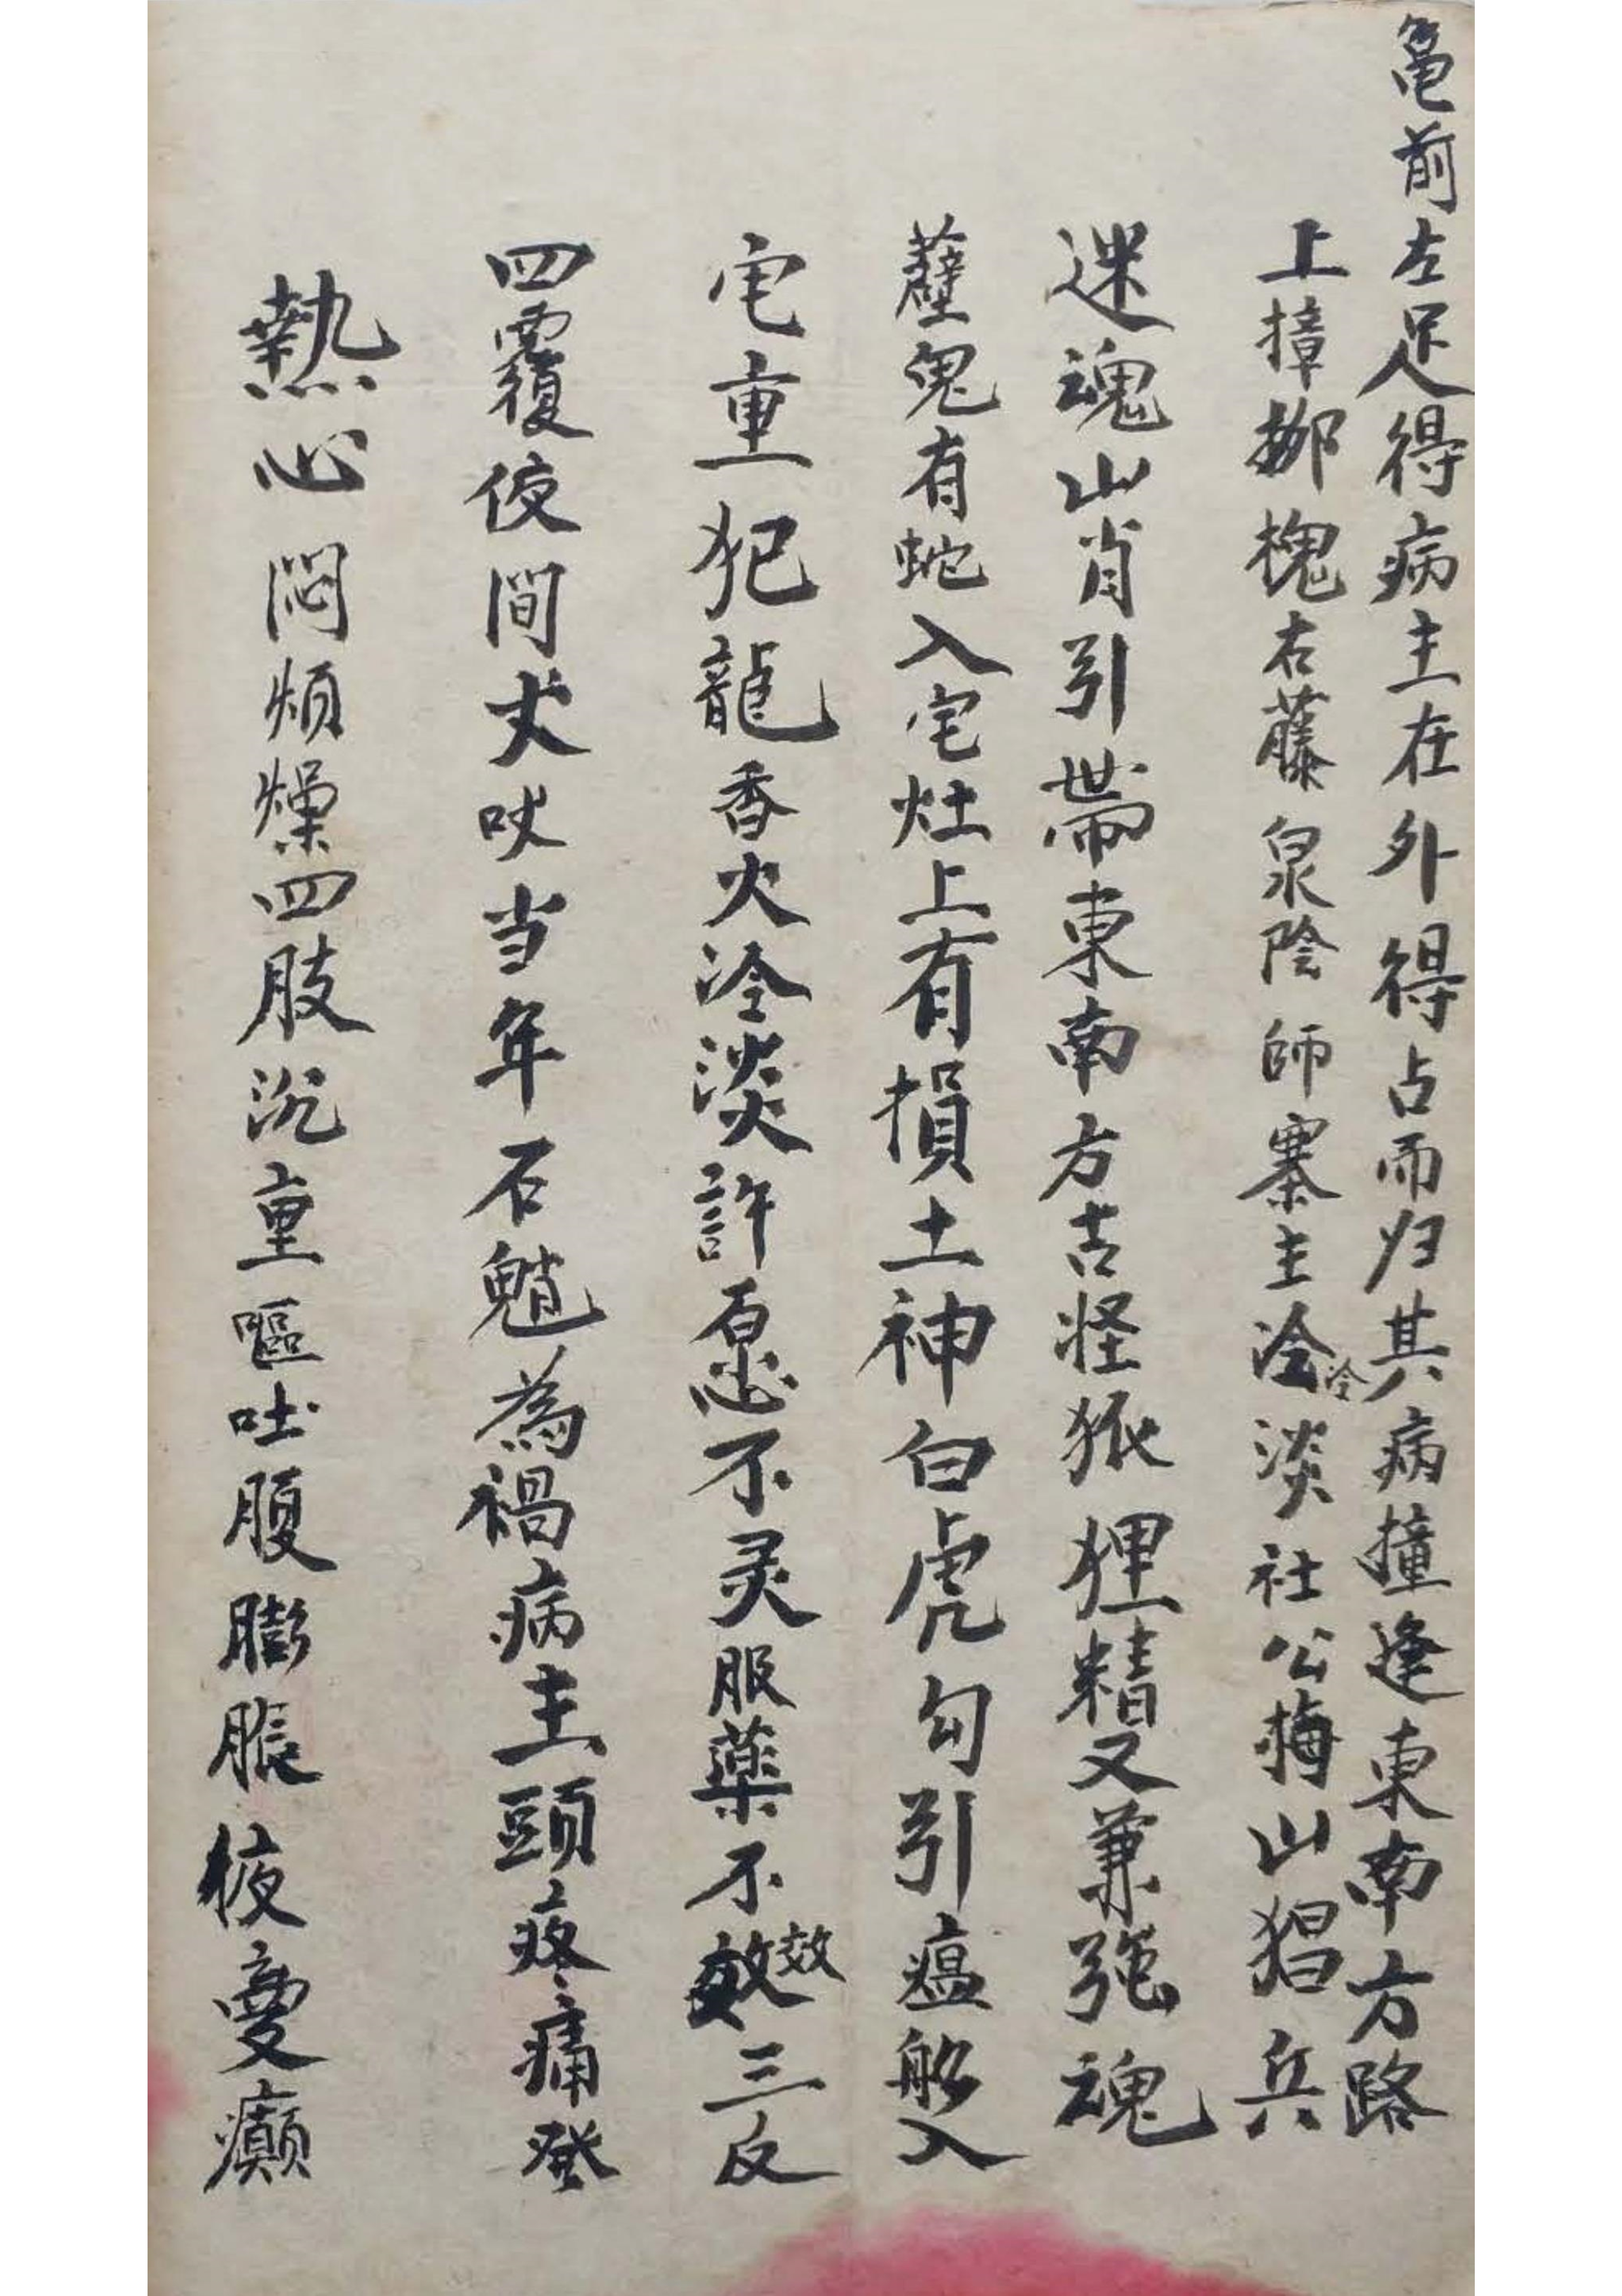 亀前左足得病主在外得占而归其病撞逢東南方路
上撞挷槐右藤泉陰師寨主冷冷淡社公梅山猖兵
迷魂山肖引帯東南方吉怪狐狸精又兼強魂
蘗鬼有蛇入宅灶上有損土神白虎勾引瘟船入
宅重犯龍香火冷淡許愿不灵服薬不效效三反
四覆夜间犬吠当年石魈為禍病主頭疼痛發
熱心悶煩燥四肢沉重嘔吐腹膨脹夜愛癲